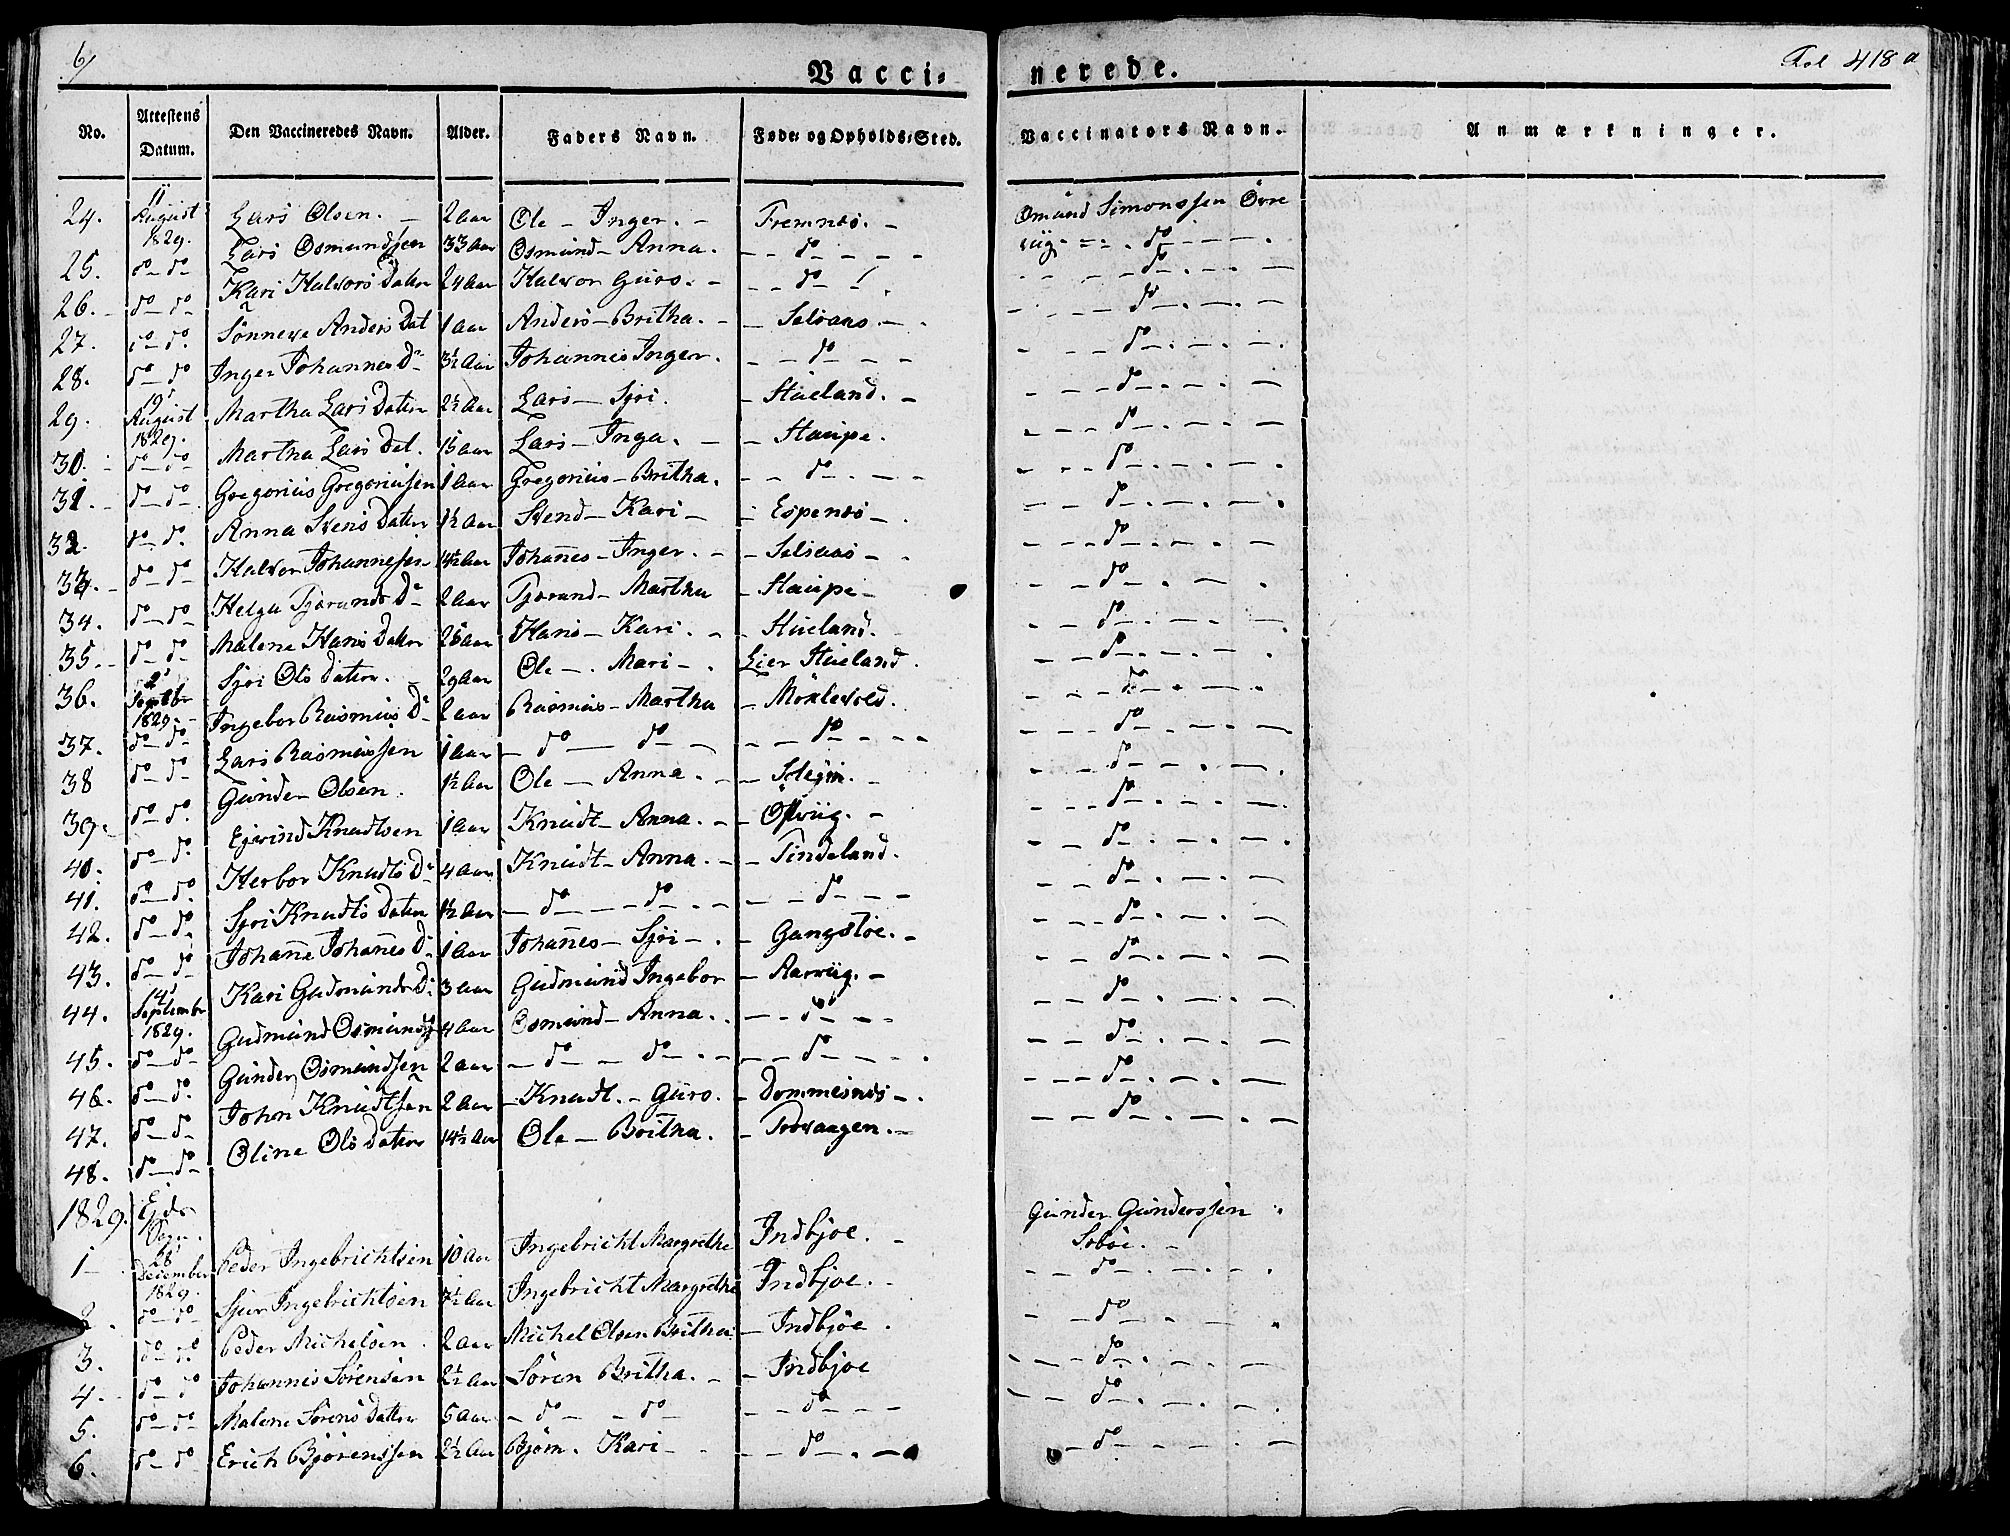 6/
Vacci-nerede.
Fol 418 a
No. Attestens Datum. Den Vaccineredes Navn. Alder. Faders Navn. Føde- og Opholds-Sted. Vaccinators Navn. Anmærkninger.
24. 11 August 1829. Lars Olsen. - 2 Aar Ole - Inger. - Fremnæs. - Omund Simonssen Øvre
25. do - do Lars Osmundssen 33 Aar Osmund - Anna. - - do - - - - viig - - - . do - . - . - .
26. - do - do Kari Halvors Datter 24 Aar Halvor Guro. - - - do - - - do - . - . -
27. do - do. Sønneve Anders Dat 1 Aar Anders - Britha. - - Selvaas. - - - - do - . - . -
28. do - do Inger Johannes D. 3½ Aar Johannes Inger. - - do - - - - - do - . - . -
29. 19 August 1829. Martha Lars Datter 2½ Aar Lars - Sjri. - Stueland. - - - - do - . - . -
30. do - do Martha Lars Dat. 1½ Aar Lars - Inga. - - Staupe. - - - do - . - . -
31. - do - do Gregorius Gregoriussen 1 Aar Gregorius - Britha. - - do - - - - - - do - . - . -
32. do - do. Anna Svens Datter 1½ Aar Svend - Kari - - Espenæs - . - - - do - . - . -
33. - do - do Halvor Johannesen 14½ Aar Johanes - Inger. - - Selvaas - . - - - do - . - . -
34. do - do Helga Tjærands D. 2 Aar Tjærand - Martha - Staupe - - - do - . - . -
35. - do - do Malene Hans Datter 26 Aar Hans - Kari. - - Stueland. - - do - . - . -
36. 2 Septbr 1829. - Sjri Ols Datter. 29 Aar Ole - . Mari - . Lier Stueland. - - do - . - . -
37. do - do Ingebor Rasmus D. 2 Aar Rasmus - Martha - Mørkevold. - - do - . - . -
38 do - do Lars Rasmussen 1 Aar - do - do - - - do - - - - - do - . - . -
39. do - do. Gunder Olsen. 1½ Aar Ole - Anna. - - - - - do - . - . -
40. do - do. Ejvind Knudtsen 1 Aar Knudt - Anna. - - - - - do - . - . -
41. do - do. Herbor Knudts D. 4 Aar Knudt - Anna. - - Tindeland. - - do - . - . -
42. do - do. Sjri Knudts Datter 1½ Aar - do - - do - - - do - - - - - do - . - . -
43. do - do Johane Johanes D. 1 Aar Johanes - Sjri - . - Gangstøe. - - - do - . - . -
44. 14 Septembr 1829. Kari Gudmunds D. 3 Aar Gudmund Ingebor - Aarviig. - - - do - . - . -
45. do - do - Gudmund Osmunds 4 Aar Osmund - Anna. - - do - - - - do - . - . -
46. do - do. Gunder Osmundsen 2 Aar - do - - do - - - do - - - - - do - . - . -
47. do - do John Knudtsen 2 Aar - Knudt. - Guro. - Dommesnæs - . - - do - . - . -
48. do - do - Oline Ols Datter 14½ Aar Ole - Britha. - Trovaagen. -
1829. Ejds Sogn. Gunder Gunderssen
1 - 28 December 1829. Peder Ingebrichtsen 10 Aar Ingebricht Margrethe Indbjoe. - Søbøe. -
2. do - do Sjur Ingebrichtsen 7½ Aar Ingebricht Margrethe Indbjoe. - - - do - . - .
3. do - do. Peder Michelsen. 2 Aar Michel Olsen Britha - Indbjøe. - - do - . -
4. - do - do Johannes Sørensen 2½ Aar Søren Britha. - - Indbjoe - - do - . - . -
5. do - do - Malene Sørens Datter 5 Aar - do - - do - - - do - - - - - do - . - . -
6. do - do - Erich Bjørenssen 2½ Aar Bjørn. Kari - . - - do - . - - - do - . - . -